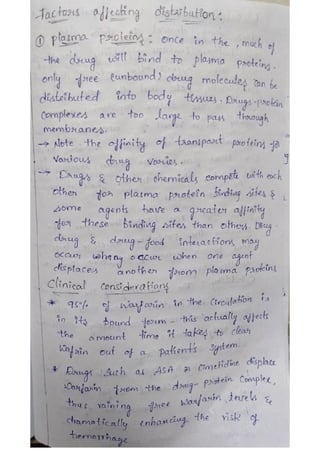 factors affecting distribution:
① plasma proteins: once in the, much of
the drug will bind to plasma proteins.
only free (unbound) drug molecules can be
distributed into body tissues. Drugs-protein
complexes are too large to pass through
membranes.
→ Note the affinity of transport proteins for
various drug varies.
→ Drugs & other chemicals compete with each
other for plasma protein binding sites &
some agents have a greater affinity
for these binding sites than others. Drug-
drug & drug-food interactions may
occur occur when one agent
displaces another from plasma proteins
Clinical considerations
* 95% of warfarin in the circulation is
in its bound form - this actually affects
the amount time it takes to clear
wafrin out of a patient's system.
* Drugs such as ASA or cimetidine displace
warfarin from the drug-protein complex,
thus raining free warfarin levels &
dramatically enhancing the risk of
hemorrhage